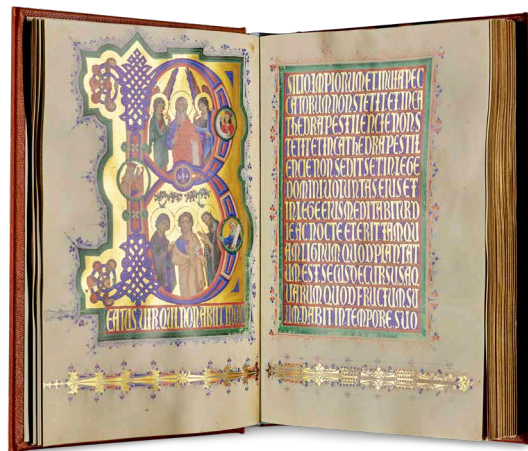 B
EATUS VIR QUI NON ABIIT
SILIO IMPIORUM ET IN VIA PEC
CATORUM NON STETIT ET IN CA
THEDRA PESTILENCIE NON S
TETIT ET IN CATHEDRA PESTIL
ENCIE NON SEDIT SET IN LEGE
DOMINI UOLUNTAS EIUS ET
IN LEGE EIUS MEDITABITUR D
IE AC NOCTE ET ERIT TAMQU
AM LIGNUM QUOD PLANTAT
UM EST SECUS DECURSUS AQ
UARUM QUOD FRUCTUM SU
UM DABIT IN TEMPORE SUO